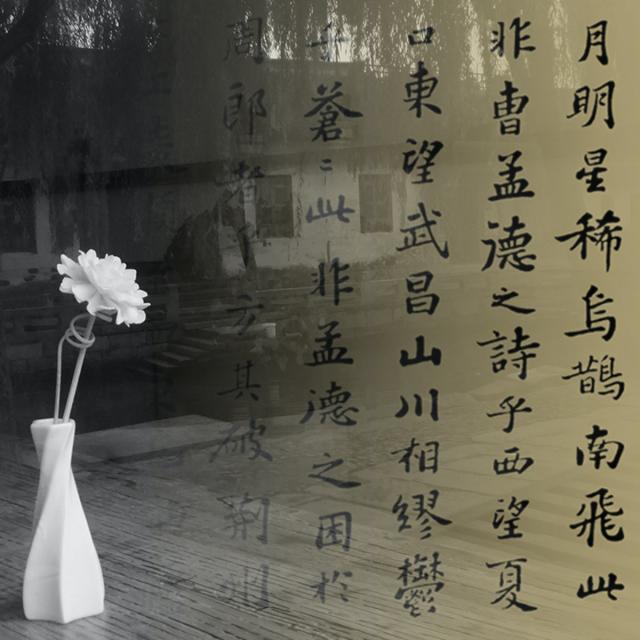 月明星稀烏鵲南飛此
非曹孟德之詩乎西望夏
口東望武昌山川相繆鬱
乎蒼〻此非孟德之困於
周郎者乎方其破荊州